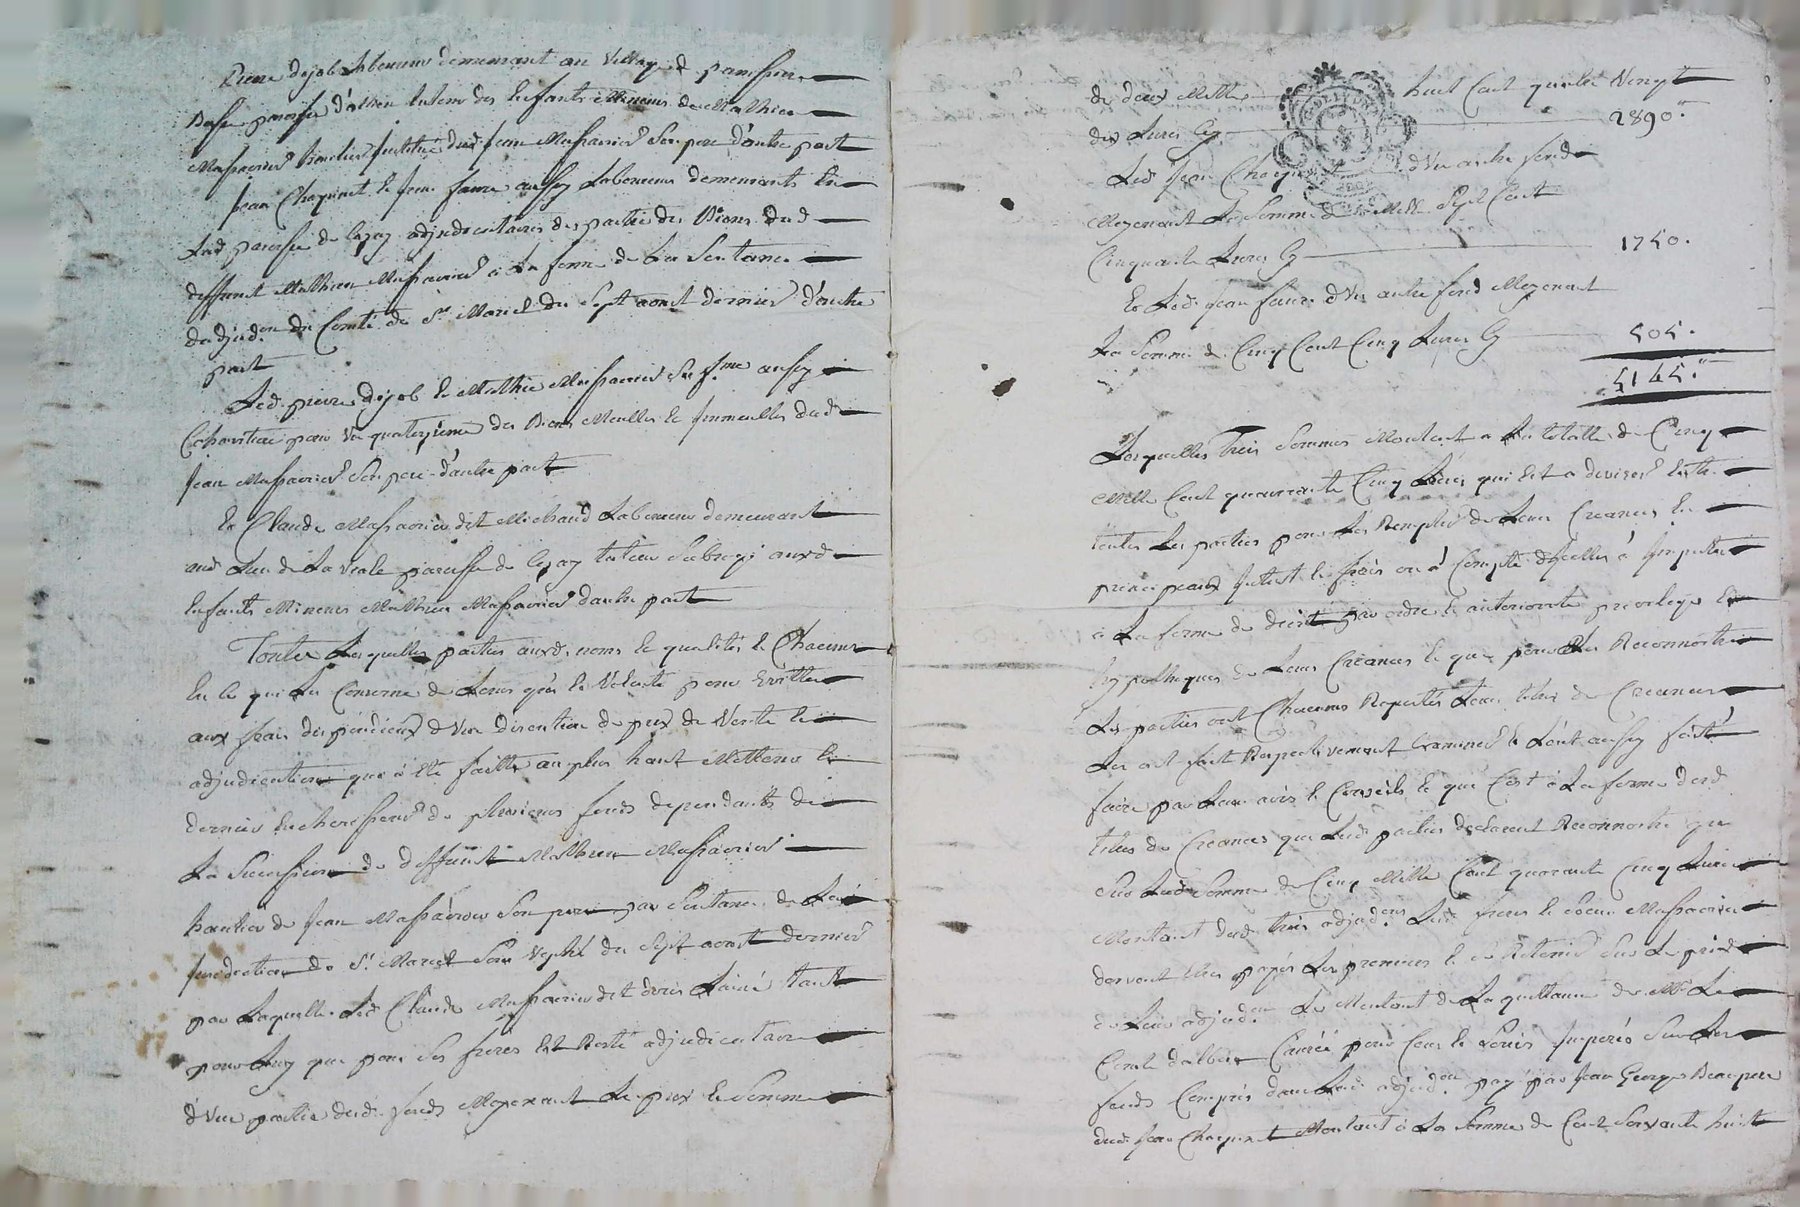 Pierre dejob Laboureur demeurant au village de
paroisse d'allieu tuteur des Enfants Mineurs de Mathieu
Massacrier heritier Institué dud. Jean Massacrier Son pere d'autre part
Jean Chaperat le Jean faure aussy Laboureurs demeurants En
Lad. paroisse de lezay adjudicataires des parties des Biens dud.
deffunt Mathieu Massacrier à La forme de La Sentance
dadjud.on du Comté de St. Marcel du Sept aoust dernier d'autre
part
Led. pierre dejob le Mathie Massacrier Sa f.me aussy
pour un quatorzieme des Biens Meubles le Immeubles dud.
Jean Massacrier Son pere d'autre part
Et Claude Massacrier dit Michaud Laboureur demeurant
aud. Lieu de La paroisse de lezay tuteur Subrogé auxd.
Enfants Mineurs Mathieu Massacrier d'autre part
Toutes Lesquelles parties auxd. noms le qualités le Chacunes
En ce qui Les Concerne de Leurs grés le Volonté pour Eviter
aux frais dispendieux d'une discution de prix de Vente le
adjudication qui à été faitte au plus haut Metteur le
dernier Encherisseur de plusieurs fonds dependants de
La Succession de deffunt Mathieu Massacrier
heritier de Jean Massacrier Son pere par Sentance de La
Juridiction de St. Marcel Sous du Sept aoust dernier
par Laquelle Led. Claude Massacrier dit L'ainé tant
pour Luy que pour Ses freres Est Resté adjudicataire
d'une partie desd. fonds Moyenant Le prix le Somme
de deux Mille huit Cent quatre Vingt
dix Livres Cy 2890.
Led. Jean Chaperat d'un autre fond
Moyenant La Somme de Mille Sept Cent
Cinquante Livres Cy 1750.
Et Led. Jean faure d'un autre fond Moyenant
La Somme de Cinq Cent Cinq Livres Cy 505.
5145.
Lesquelles trois Sommes Montent a La totalle de Cinq
Mille Cent quarrante Cinq Livres qui Est a diviser Entre
toutes Les parties pour Les Remplir de Leurs Creances En
principaux Interest le frais ou à Compte d'Icelles à Imputer
à La forme de droit par ordre le anteriorité privilege le
hypotheques de Leurs Creances le que pour Les Reconnoitre
Les parties ont Chacunes Raportés Leurs titres de Creances
Les ont fait Respectivement Examiner le L'ont aussy fait
faire par Leurs avis le Conseils le que C'est à La forme desd.
titres de Creances que Lesd. parties declarent Reconnoitre que
Sur Lad. Somme de Cinq Mille Cent quarante Cinq Livres
Montant desd. trois adjud.ons Lesd. freres le Soeur Massacrier
doivent Etre payés Les premiers le Retenir Sur Le prix
de Leur adjud.on Le Montant de La quittance de Mr. Le
Comte d'albon pour Cens le Imposés Sur Les
fonds Compris dans Lad. adjud.on payé par Jean George Beaupere
dud. Jean Chaperat Montant à La Somme de Cent Soixante huit